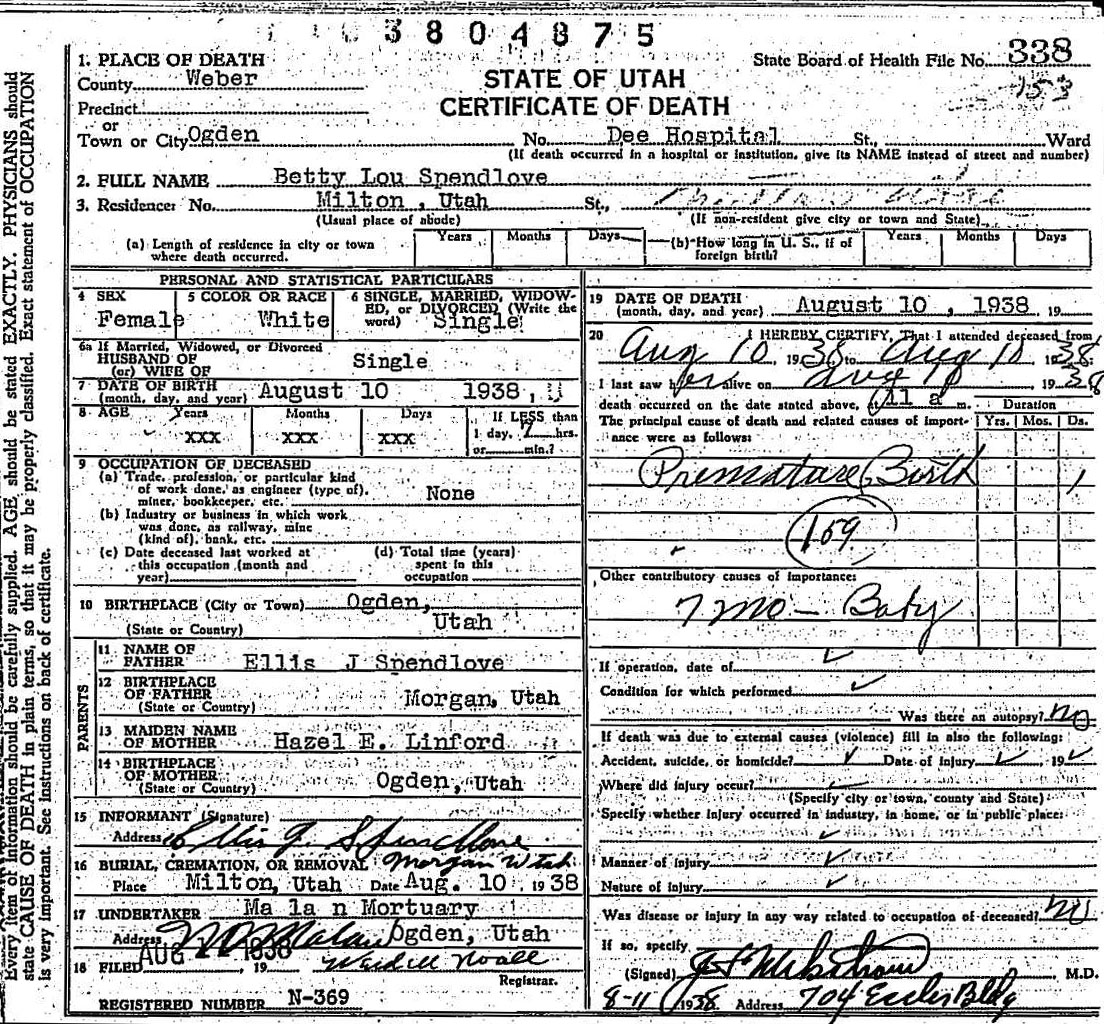 3804875
1. PLACE OF DEATH
State Board of Health File No. 338
County Weber
STATE OF UTAH
153
Precinct
CERTIFICATE OF DEATH
or
Town or City Ogden No. Dee Hospital St., Ward
(If death occurred in a hospital or institution, give its NAME instead of street and number)
2. FULL NAME Betty Lou Spendlove
3. Residence: No. Milton, Utah St.,
(Usual place of abode) (If non-resident give city or town and State)
(a) Length of residence in city or town where death occurred. Years Months Days (b) How long in U. S., if of foreign birth? Years Months Days
PERSONAL AND STATISTICAL PARTICULARS
4 SEX 5 COLOR OR RACE 6 SINGLE, MARRIED, WIDOW-
ED, or DIVORCED (Write the
word)
Female White Single
6a If Married, Widowed, or Divorced
HUSBAND OF
(or) WIFE OF Single
7 DATE OF BIRTH
(month, day, and year) August 10 1938,
8 AGE Years Months Days If LESS than
xxx xxx xxx 1 day, 7 hrs.
or min.?
9 OCCUPATION OF DECEASED
(a) Trade, profession, or particular kind
of work done, as engineer (type of),
miner, bookkeeper, etc. None
(b) Industry or business in which work
was done, as railway, mine
(kind of), bank, etc.
(c) Date deceased last worked at
this occupation (month and
year)
(d) Total time (years)
spent in this
occupation
10 BIRTHPLACE (City or Town) Ogden,
(State or Country) Utah
PARENTS
11 NAME OF
FATHER Ellis J Spendlove
12 BIRTHPLACE
OF FATHER
(State or Country) Morgan, Utah
13 MAIDEN NAME
OF MOTHER Hazel E. Linford
14 BIRTHPLACE
OF MOTHER
(State or Country) Ogden, Utah
15 INFORMANT (Signature)
Address Ellis J. Spendlove
Morgan Utah
16 BURIAL, CREMATION, OR REMOVAL
Place Milton, Utah Date Aug. 10 1938
17 UNDERTAKER Ma la n Mortuary
Address Ogden, Utah
AUG 1938
18 FILED , 19 Wardell Noall
Registrar.
REGISTERED NUMBER N-369
19 DATE OF DEATH
(month, day, and year) August 10, 1938 19
20 I HEREBY CERTIFY, That I attended deceased from
Aug 10 1938 to Aug 10 1938
I last saw her alive on Aug 1938
death occurred on the date stated above, at 11 a m. Duration
The principal cause of death and related causes of import-
ance were as follows: Yrs. Mos. Ds.
Premature Birth 1
159
Other contributory causes of importance:
7 mo - Baby
If operation, date of
Condition for which performed
Was there an autopsy? no
If death was due to external causes (violence) fill in also the following:
Accident, suicide, or homicide? Date of injury , 19
Where did injury occur?
(Specify city or town, county and State)
Specify whether injury occurred in industry, in home, or in public place:
Manner of injury
Nature of injury
Was disease or injury in any way related to occupation of deceased? no
If so, specify
(Signed) M.D.
8-11 1938 Address 704 Eccles Bldg
Every item of information should be carefully supplied. AGE should be stated EXACTLY. PHYSICIANS should
state CAUSE OF DEATH in plain terms, so that it may be properly classified. Exact statement of OCCUPATION
is very important. See instructions on back of certificate.